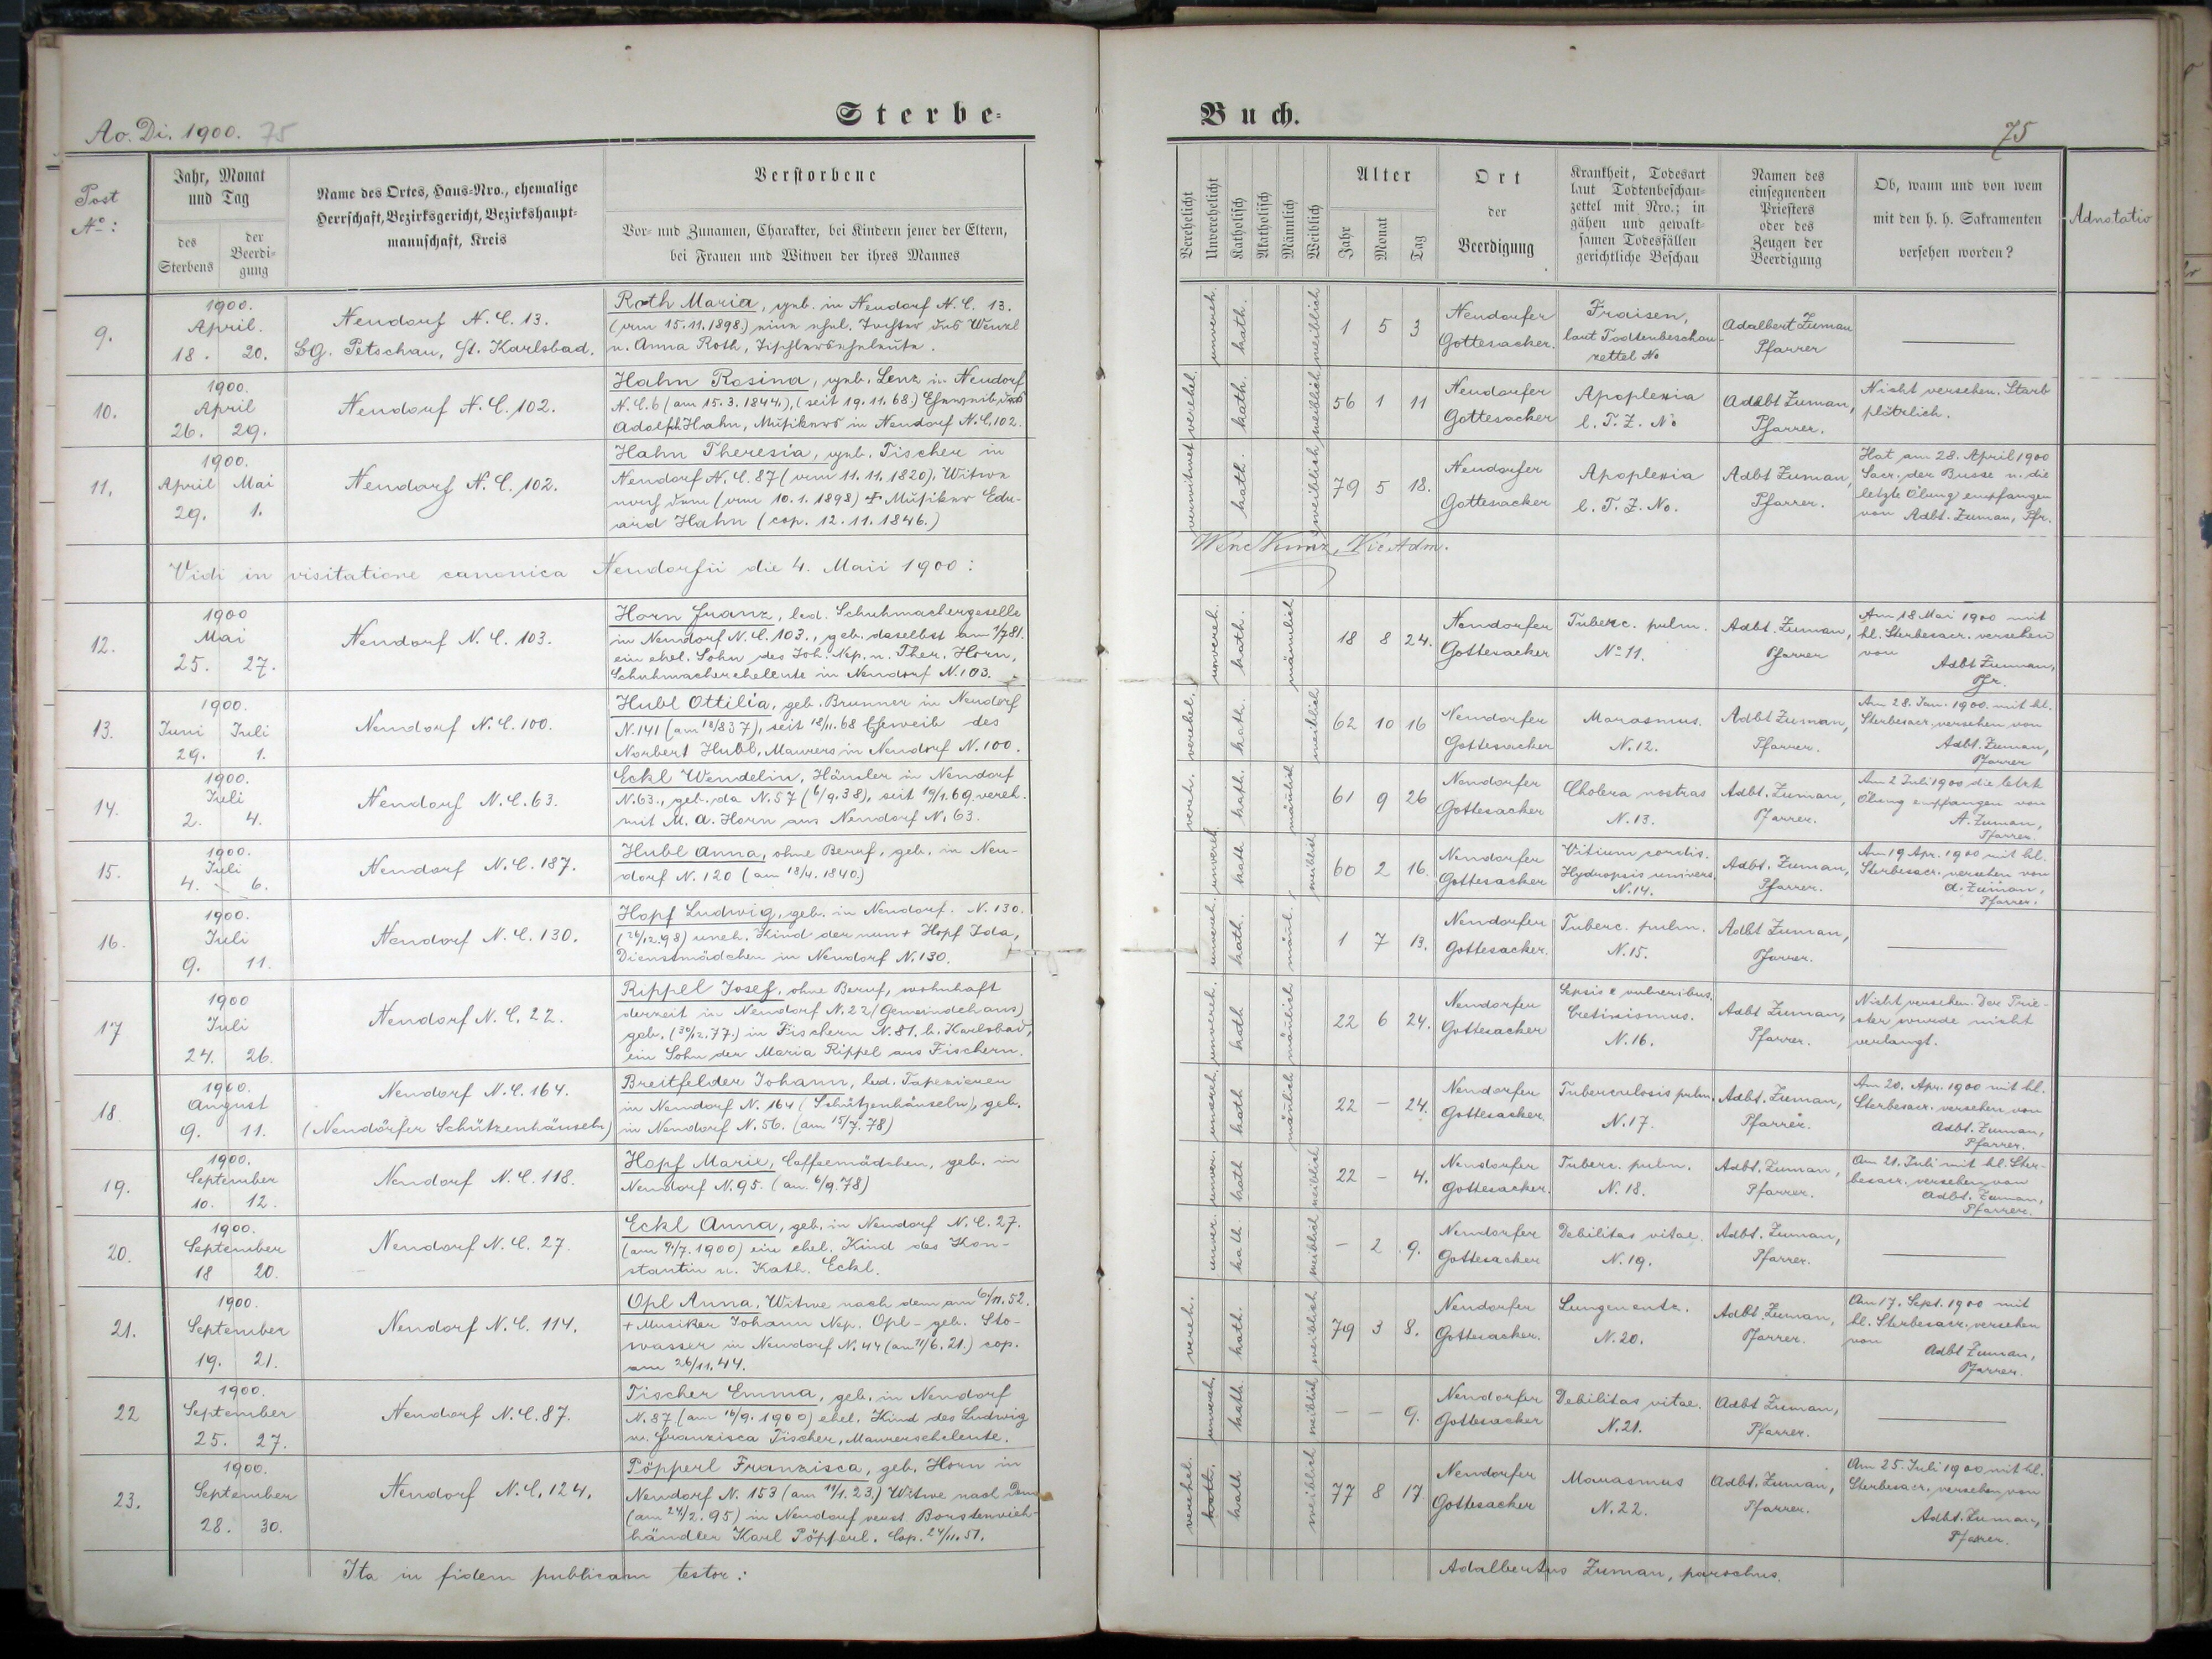 Sterbe-
Buch.
Ao. Di. 1900. 75
75
Post
No:
Jahr, Monat
und Tag
des
Sterbens
der
Beerdi-
gung
Name des Ortes, Haus-Nro., ehemalige
Herrschaft, Bezirksgericht, Bezirkshaupt-
mannschaft, Kreis
Verstorbene
Vor- und Zunamen, Charakter, bei Kindern jener der Eltern,
bei Frauen und Witwen der ihres Mannes
Verehelicht
Unverehelicht
Katholisch
Akatholisch
Männlich
Weiblich
Alter
Jahr
Monat
Tag
Ort
der
Beerdigung
Krankheit, Todesart
laut Todtenbeschau-
zettel mit Nro.; in
gähen und gewalt-
samen Todesfällen
gerichtliche Beschau
Namen des
einsegnenden
Priesters
oder des
Zeugen der
Beerdigung
Ob, wann und von wem
mit den h. h. Sakramenten
versehen worden?
Adnotatio
9.
1900.
April.
18. 20.
Neudorf N. C. 13.
BG. Petschau, Karlsbad.
Roth Maria, geb. in Neudorf N. C. 13.
(am 15.11.1898.) eine ehel. Tochter des Wenzl
u. Anna Roth, Tischlerseheleute.
unvereh. kath. weiblich
1 5 3
Neudorfer
Gottesacker.
Fraisen,
laut Todtenbeschau-
zettel No
Adalbert Zuman
Pfarrer
10.
1900.
April
26. 29.
Neudorf N. C. 102.
Hahn Rosina, geb. Lenz in Neudorf
N. C. 6 (am 15.3.1844.), (seit 19.11.68.) Eheweib des
Adolf Hahn, Musikers in Neudorf N. C. 102.
verehel. kath. weiblich
56 1 11
Neudorfer
Gottesacker
Apoplexia
l. T. Z. No
Adalbt Zuman,
Pfarrer.
Nicht versehen. Starb
plötzlich.
11.
1900.
April Mai
29. 1.
Neudorf N. C. 102.
Hahn Theresia, geb. Tischer in
Neudorf N. C. 87 (am 11.11.1820), Witwe
nach dem (am 10.1.1898) + Musiker Edu-
ard Hahn (cop. 12.11.1846.)
verwitwet kath. weiblich
79 5 18.
Neudorfer
Gottesacker
Apoplexia
l. T. Z. No.
Adbt Zuman,
Pfarrer.
Hat am 28. April 1900
Sacr. der Busse u. die
letzte Ölung empfangen
von Adbt. Zuman, Pfr.
Vidi in visitatione canonica Neudorfii die 4. Maii 1900:
Kunz, Vic. Adm.
12.
1900
Mai
25. 27.
Neudorf N. C. 103.
Horn Franz, led. Schuhmachergeselle
in Neudorf N. C. 103., geb. daselbst am 1/7 81.
ein ehel. Sohn des Joh. Nep. u. Ther. Horn,
Schuhmachereheleute in Neudorf N. 103.
unvereh. kath. männlich
18 8 24.
Neudorfer
Gottesacker
Tuberc. pulm.
No 11.
Adbt. Zuman,
Pfarrer
Am 18 Mai 1900 mit
hl. Sterbesacr. versehen
von
Adbt Zuman,
Pfr.
13.
1900.
Juni Juli
29. 1.
Neudorf N. C. 100.
Hubl Ottilia, geb. Brunner in Neudorf
N. 141 (am 13/8 37), seit 18/11. 68 Eheweib des
Norbert Hubl, Maurers in Neudorf N. 100.
verehel. kath. weiblich
62 10 16
Neudorfer
Gottesacker
Marasmus.
N. 12.
Adbt Zuman,
Pfarrer.
Am 28. Jun. 1900. mit hl.
Sterbesacr. versehen von
Adbt. Zuman,
Pfarrer
14.
1900.
Juli
2. 4.
Neudorf N. C. 63.
Eckl Wendelin, Häusler in Neudorf
N. 63., geb. da N. 57 (6/9. 38), seit 19/1. 69 vereh.
mit M. A. Horn aus Neudorf N. 63.
vereh. kath. männlich
61 9 26
Neudorfer
Gottesacker
Cholera nostras
N. 13.
Adbt. Zuman,
Pfarrer.
Am 2 Juli 1900 die letzte
Ölung empfangen von
A. Zuman,
Pfarrer.
15.
1900.
Juli
4. 6.
Neudorf N. C. 187.
Hubl Anna, ohne Beruf, geb. in Neu-
dorf N. 120 (am 18/4. 1840)
unvereh. kath. weiblich
60 2 16.
Neudorfer
Gottesacker
Vitium cordis.
Hydropsis univers.
N. 14.
Adbt. Zuman,
Pfarrer.
Am 19 Apr. 1900 mit hl.
Sterbesacr. versehen von
A. Zuman,
Pfarrer.
16.
1900.
Juli
9. 11.
Neudorf N. C. 130.
Hopf Ludwig, geb. in Neudorf. N. 130.
(26/12. 98) uneh. Kind der nun + Hopf Ida,
Dienstmädchen in Neudorf N. 130.
unvereh. kath. männl.
1 7 13.
Neudorfer
Gottesacker.
Tuberc. pulm.
N. 15.
Adbt Zuman,
Pfarrer.
17
1900
Juli
24. 26.
Neudorf N. C. 22.
Rippel Josef, ohne Beruf, wohnhaft
derzeit in Neudorf N. 22 (Gemeindehaus)
geb. (30/12. 77.) in Fischern N. 81. b. Karlsbad,
ein Sohn der Maria Rippel aus Fischern.
unvereh. kath männlich
22 6 24.
Neudorfer
Gottesacker
Sepsis e vulneribus.
Cretinismus.
N. 16.
Adbt Zuman,
Pfarrer.
Nicht versehen. Der Prie-
ster wurde nicht
verlangt.
18.
1900.
August
9. 11.
Neudorf N. C. 164.
(Neudörfer Schützenhäuseln)
Breitfelder Johann, led. Tapezierer
in Neudorf N. 164 (Schützenhäuseln), geb.
in Neudorf N. 56. (am 15/7. 78)
unvereh. kath männlich
22 - 24.
Neudorfer
Gottesacker.
Tuberculosis pulm.
N. 17.
Adbt. Zuman,
Pfarrer.
Am 20. Apr. 1900 mit hl.
Sterbesacr. versehen von
Adbt. Zuman,
Pfarrer.
19.
1900.
September
10. 12.
Neudorf N. C. 118.
Hopf Marie, Caffeemädchen, geb. in
Neudorf N. 95. (am 6/9. 78)
unver. kath weiblich
22 - 4.
Neudorfer
Gottesacker.
Tuberc. pulm.
N. 18.
Adbt. Zuman,
Pfarrer.
Am 21. Juli mit hl. Ster-
besacr. versehen von
Adbt. Zuman,
Pfarrer.
20.
1900.
September
18 20.
Neudorf N. C. 27.
Eckl Anna, geb. in Neudorf N. C. 27.
(am 9/7. 1900) ein ehel. Kind des Kon-
stantin u. Kath. Eckl.
unver. kath. weiblich
- 2 9.
Neudorfer
Gottesacker
Debilitas vitae.
N. 19.
Adbt. Zuman,
Pfarrer.
21.
1900.
September
19. 21.
Neudorf N. C. 114.
Opl Anna, Witwe nach dem am 6/11. 52.
+ Musiker Johann Nep. Opl - geb. Sto-
wasser in Neudorf N. 44 (am 11/6. 21.) cop.
am 26/11. 44.
vereh. kath. weiblich
79 3 8.
Neudorfer
Gottesacker.
Lungenentz.
N. 20.
Adbt. Zuman,
Pfarrer.
Am 17. Sept. 1900 mit
hl. Sterbesacr. versehen
von
Adbt Zuman,
Pfarrer.
22
1900.
September
25. 27.
Neudorf N. C. 87.
Tischer Emma, geb. in Neudorf
N. 87 (am 16/9. 1900) ehel. Kind des Ludwig
u. Franzisca Tischer, Maurerseheleute.
unvereh. kath. weiblich
- - 9.
Neudorfer
Gottesacker
Debilitas vitae.
N. 21.
Adbt Zuman,
Pfarrer.
23.
1900.
September
28. 30.
Neudorf N. C. 124.
Pöpperl Franzisca, geb. Horn in
Neudorf N. 153 (am 11/1. 23.) Witwe nach dem
(am 24/2. 95) in Neudorf verst. Borstenvieh-
händler Karl Pöpperl. Cop. 24/11. 51.
verehel. kath. kath weiblich
77 8 17.
Neudorfer
Gottesacker
Marasmus
N. 22.
Adbt. Zuman,
Pfarrer.
Am 25. Juli 1900 mit hl.
Sterbesacr. versehen von
Adbt. Zuman,
Pfarrer.
Ita in fidem publicam testor:
Adalbertus Zuman, parochus.